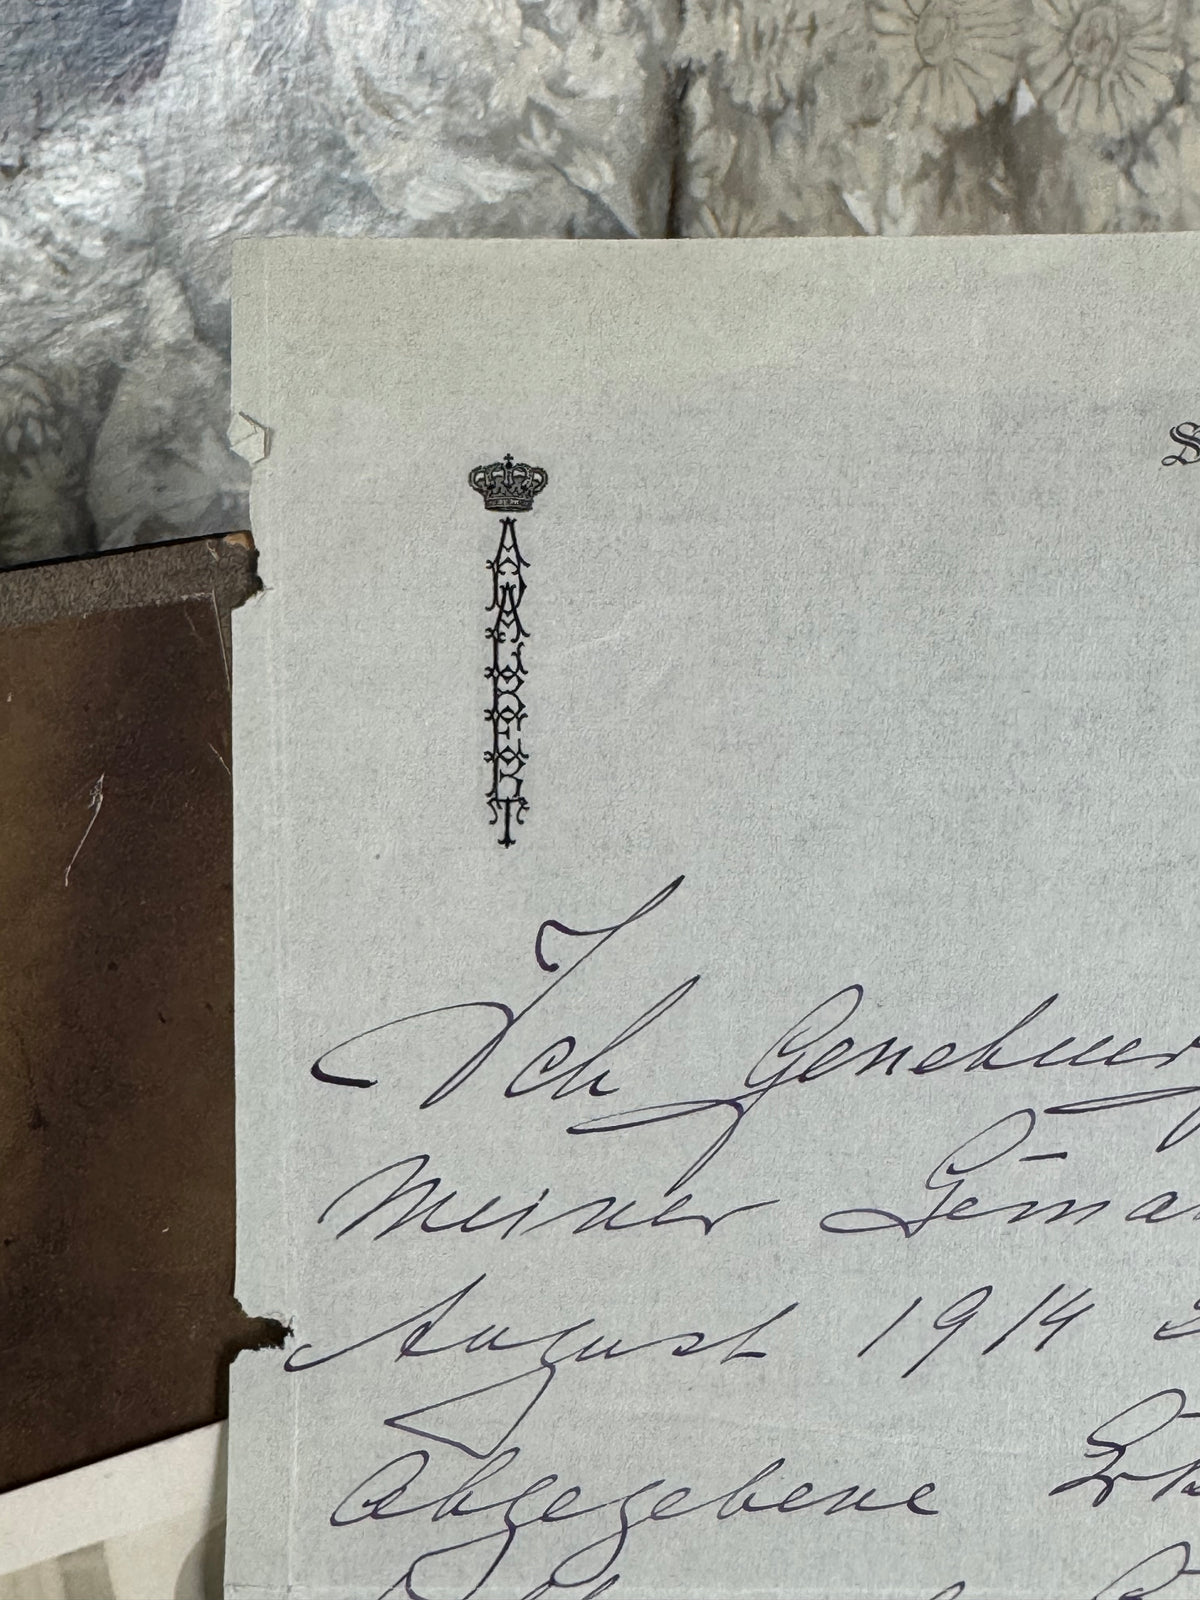 S
ADALBERT
Ich Genehmig
Meiner Gema
August 1914
Abgegebene Er